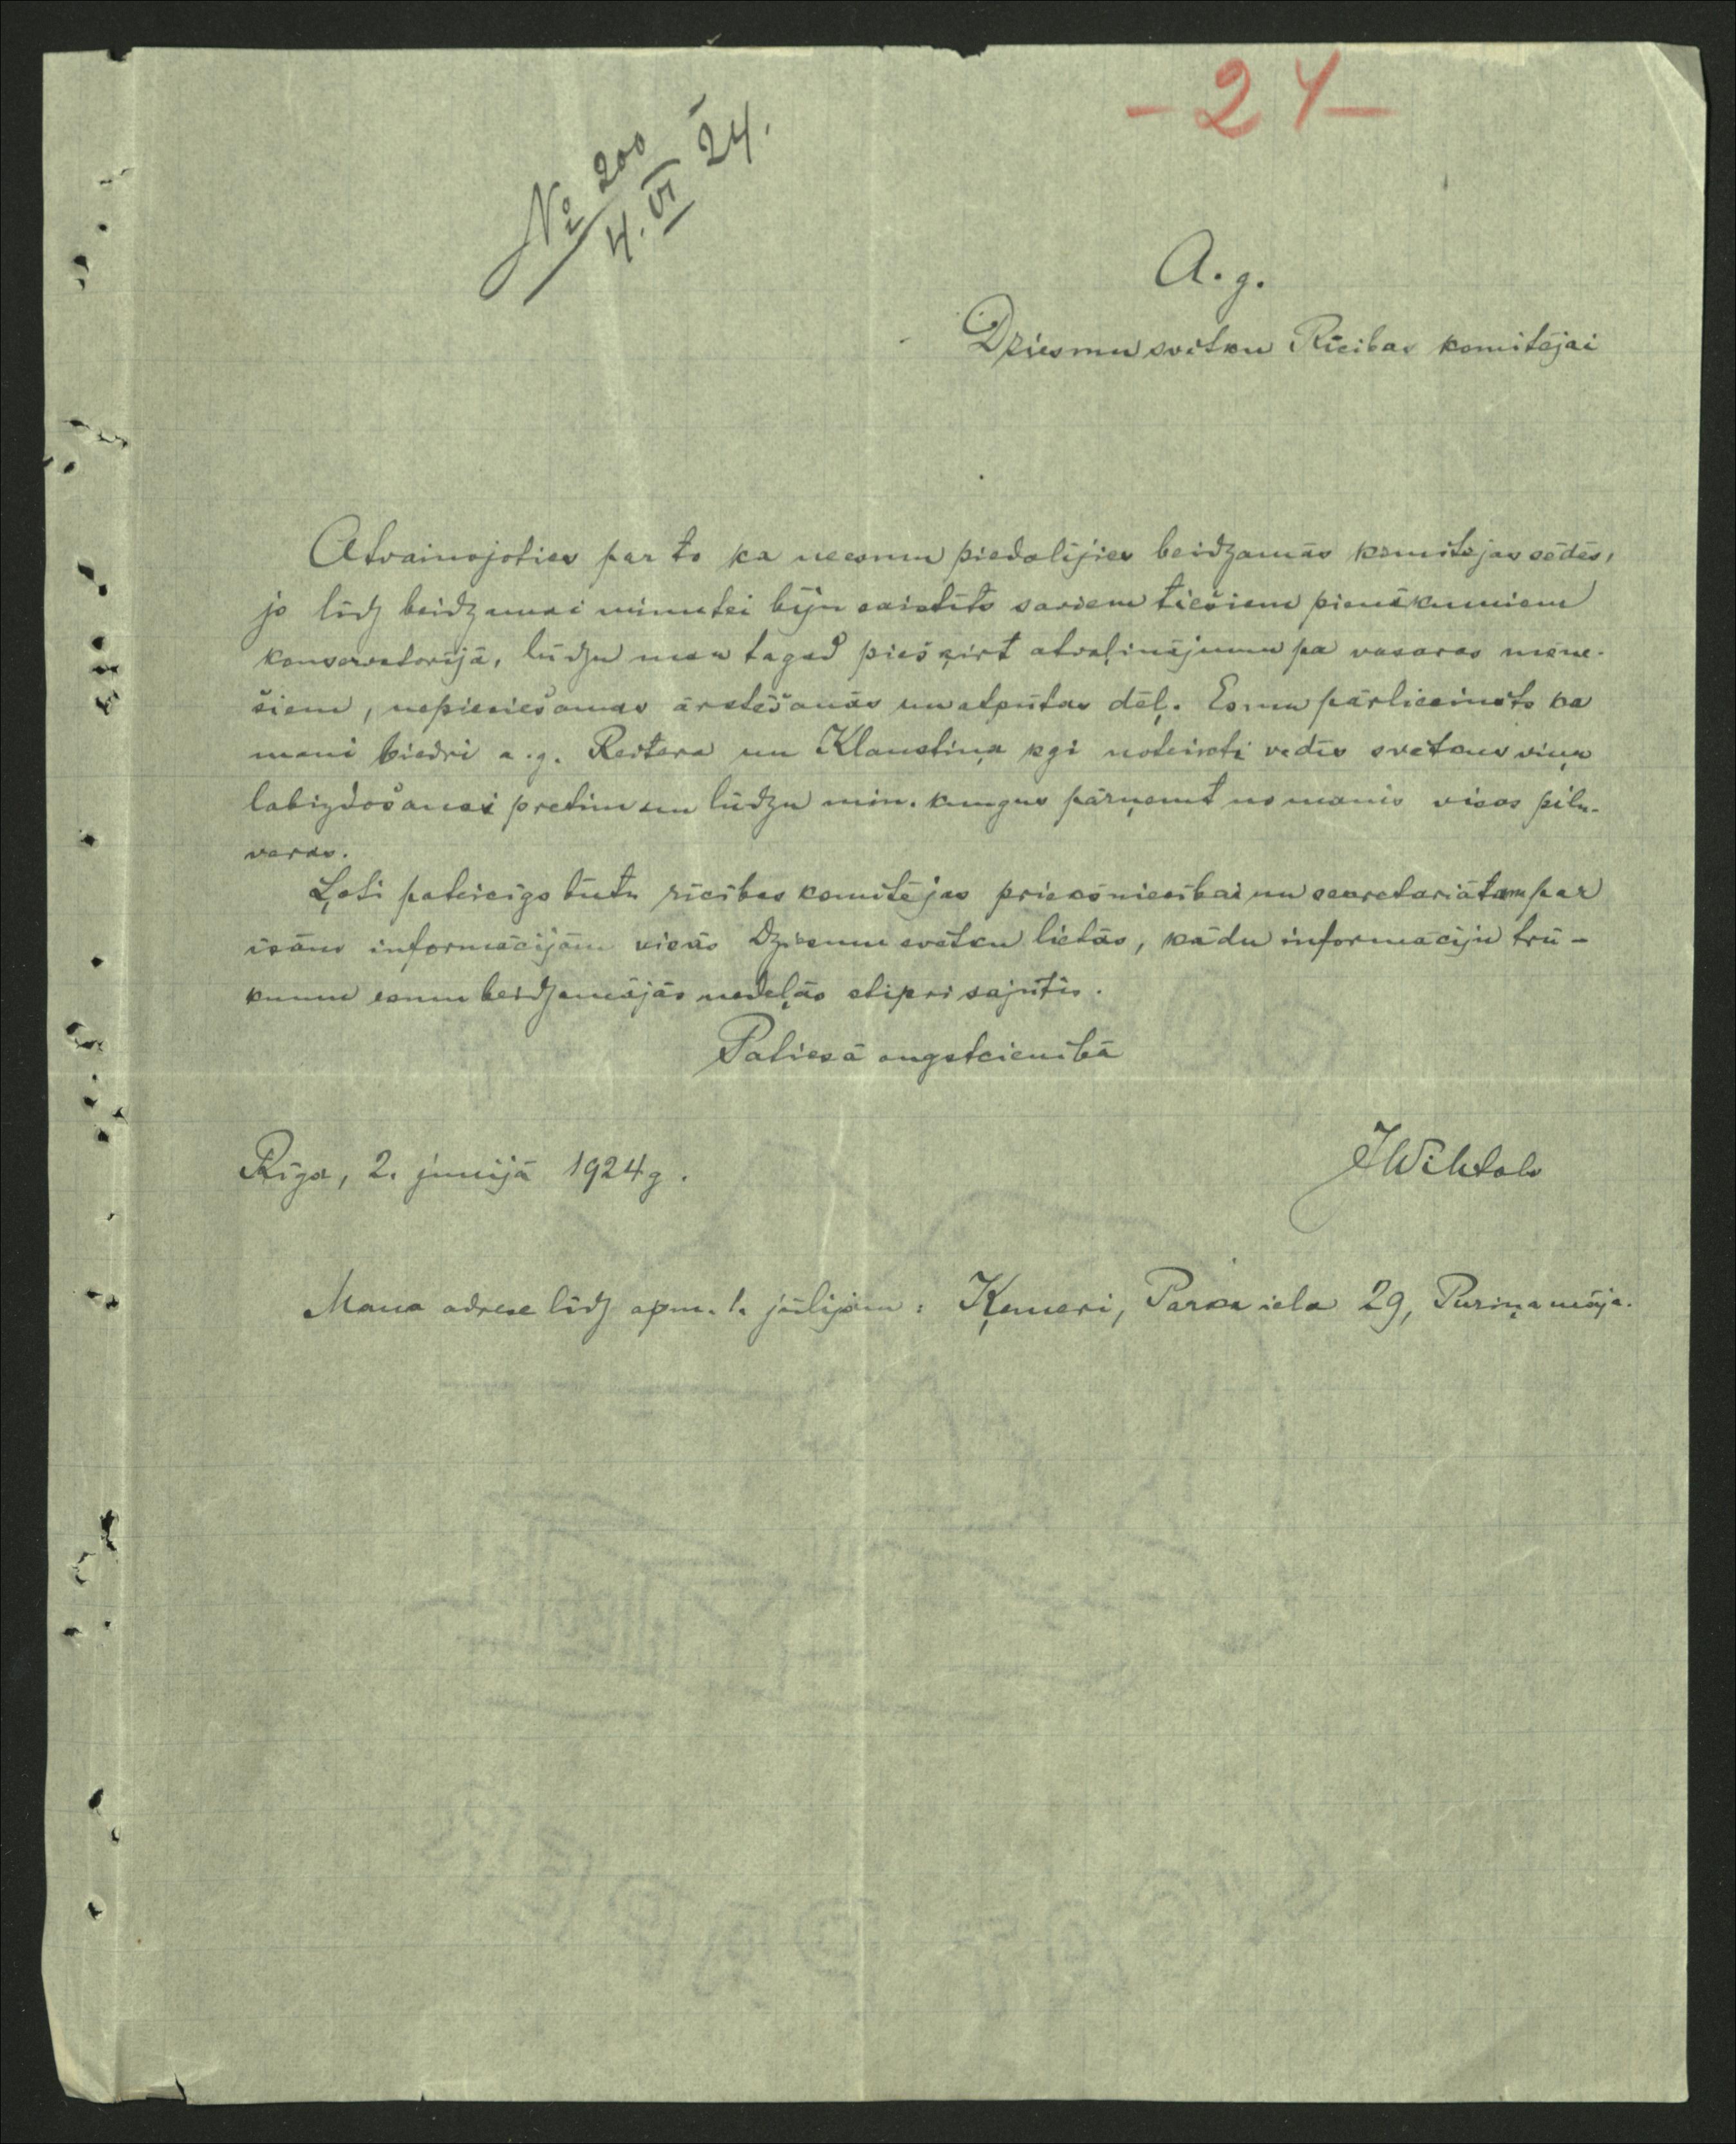 - 24 -
№ 200
4. VI 24.
A. g.
Dziesmu svētku Rīcibas komitejai
Atvainojoties par to ka neesmu piedalījies beidzamās komitejas sēdēs,
jo līdz beidzamai minutei biju saistīts saviem tiešiem pienākumiem
konservatorijā, lūdzu man tagad piešķirt atvaļinājumu pa vasaras mēne-
šiem, nepieciešamas ārstēšanās un atpūtas dēļ. Esmu pārliecināts ka
mani biedri a. g. Reitera un Klaustiņa kgi noteikti vedīs svētkus viņu
labizdošanai pretim un lūdzu min. kungus pārņemt no manis visas piln-
varas.
Ļoti pateicīgs būtu rīcības komitējas priekšniecībai un sekretariātam par
īsām informācijām visās Dziesmu svētku lietās, kādu informāciju trū-
kumu esmu beidzamajās nedeļās stipri sajutis.
Patiesā augstcienībā
Rīgā, 2. junijā 1924 g.
JWihtols
Mana adrese līdz apm. 1. jūlijam: Ķemeri, Parka iela 29, Puriņa māja.